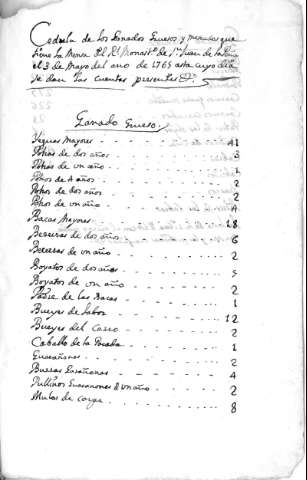 Cedula de los Ganados Gruesos y menudos que
tiene la Mensa del Rl Monastº de Sn Juan de la Peña
el 3 de Mayo del año de 1765 asta cuyo dia
se dan las cuentas presentes
Ganado Grueso
Yeguas Mayores 41
Potras de dos años 3
Potras de un año 1
Potros de 4 años 2
Potros de dos años 2
Potros de un año 4
Bacas Mayores 18
Becerras de dos años 6
Becerras de un año 2
Boyatos de dos años 5
Boyatos de un año 2
Padre de las Bacas 1
Bueyes de labor 12
Bueyes del Carro 2
Caballo de la Parada 1
Guarañones 2
Burras Guarañonas 4
Pullinos Guaranones de un año 2
Mulas de carga 8